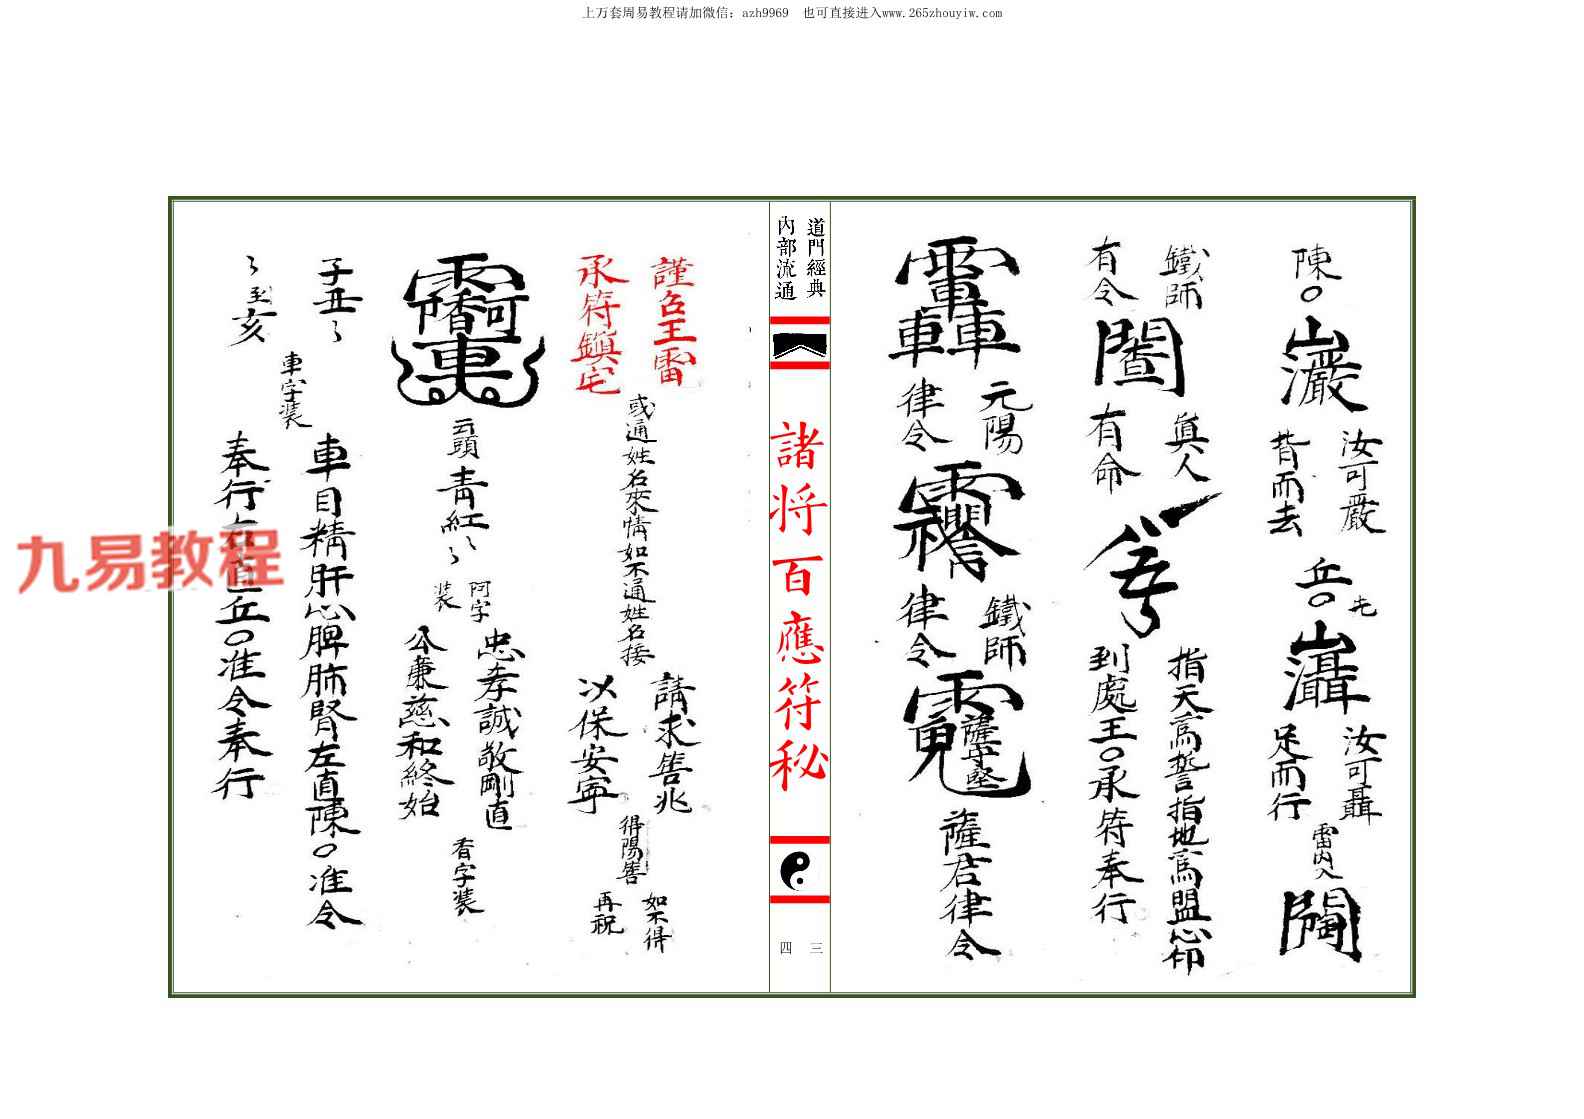 上万套周易教程请加微信：azh9969　也可直接进入www.265zhouyiw.com
陳○
汝可嚴
背而去
丘○
汝可聶
足而行
雷内入
鐵師
有令
真人
有命
指天爲誓指地爲盟心印
到處王○承符奉行
元陽
律令
鐵師
律令
薩守堅
薩君律令
道門經典
內部流通
諸将百應符秘
三
四
謹召王雷
承符鎮宅
或通姓名來情如不通姓名接
請求善兆
以保安寧
得陽善
如不得
再祝
云頭
青紅
阿字
装
忠孝誠敬剛直
公廉慈和終始
香字装
子丑
至亥
車字装
車目精肝心脾肺腎左直陳○准令
奉行右直丘○准令奉行
九易教程